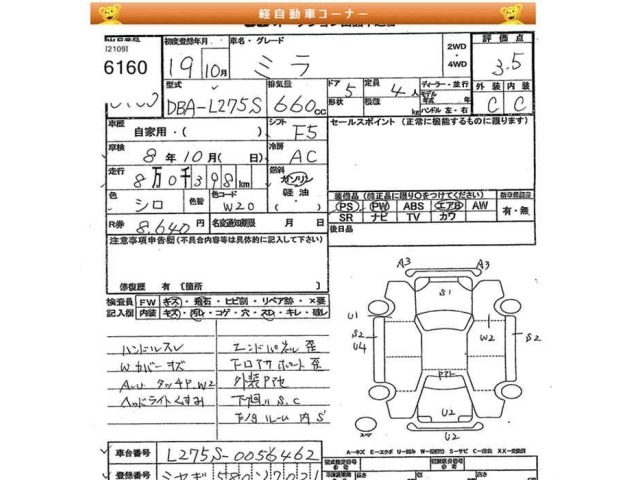 軽自動車コーナー
[2109]
初度登録年月 車名・グレード 2WD ・ 4WD 評価点
6160 19 10月 ミラ 3.5
型式 排気量 ドア 定員 ディーラー・並行 外装 内装
DBA-L275S 660cc 形状 5 積載 4人 kg モデル 年式 年 ハンドル 左・右 C C
車歴 シフト セールスポイント (正常に機能するものに限ります)
自家用・( ) F5
車検 冷房
8年10月(日) AC
走行 燃料
8万0千398km ガソリン
軽油
色 色コード
シロ W20
装備品(純正品に限り○をつけてください) 新車保証書
PS PW ABS エアB AW 有・無
SR ナビ TV カワ
R券 8,640 名変通知期限 月 日 後日品
注意事項申告欄(不具合内容等は具体的に記入して下さい)
修復歴 有 [箇所 ]
検査員 FW キズ・飛石・ヒビ割・リペア跡・×要
記入欄 内装 キズ・汚D・コゲ・穴・スD・キレ・破レ
ハンドルスレ エンドパネル歪
Wカバーキズ
ヘッドライトくすみ 下廻りS,C
A3 A3
S1
U1
S2 U4 W2 S2
U2
スペア U2
A-キズ E-エクボ U-凹み W-波打り S-サビ C-腐食 XX-交換済
車台番号 L275S-0056462